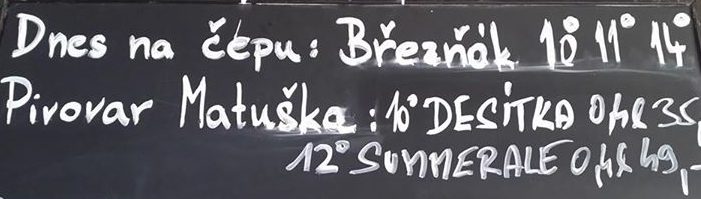 Dnes na čepu: Březňák 10° 11° 14°
Pivovar Matuška: 10° DESÍTKA 0,4l 35,
12° SUMMERALE 0,4l 49,-